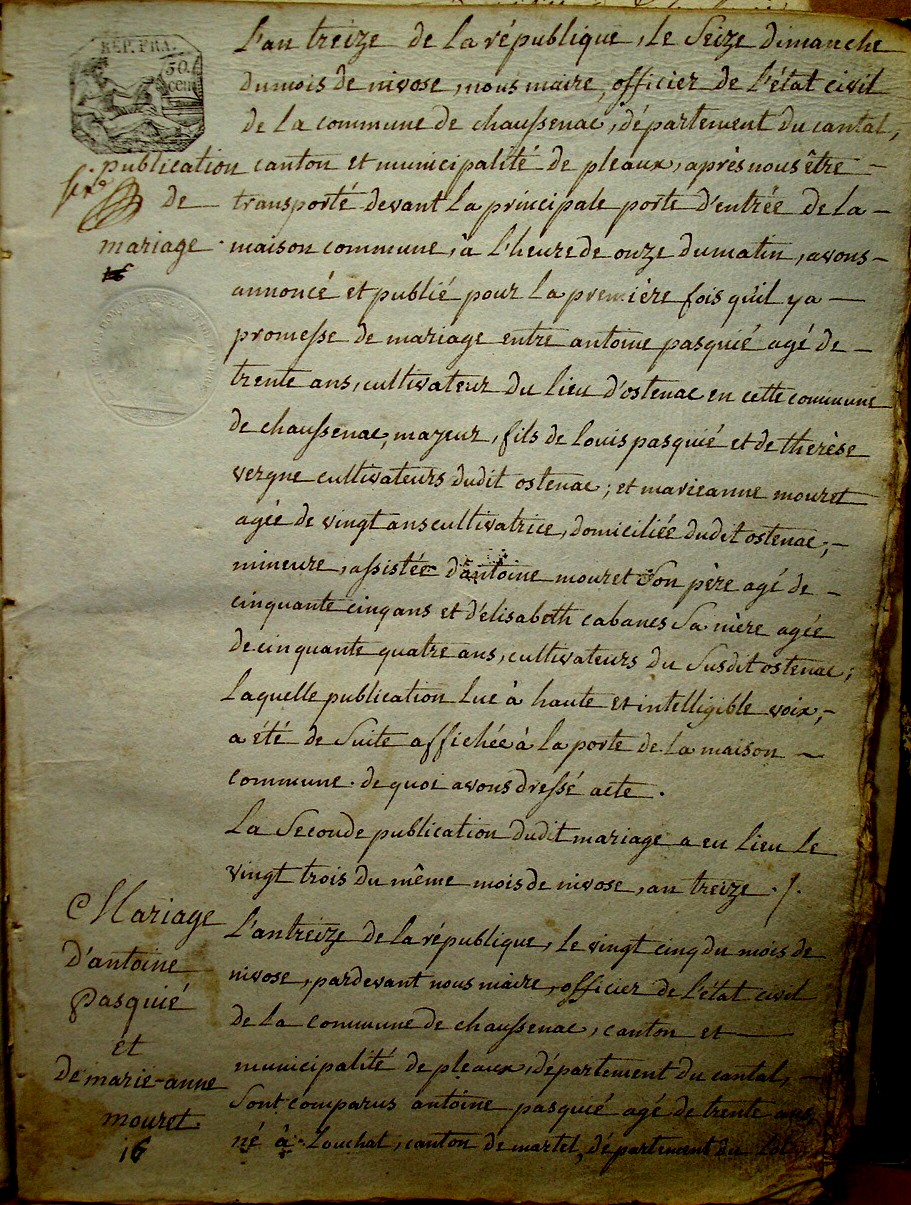 RÉP. FRA.
50.
cen
L'an treize de la république, le Seize dimanche
du mois de nivose, nous maire, officier de l'état civil
de la commune de chaussenac, département du cantal,
publication
canton et municipalité de pleaux, après nous être —
de
transporté devant la principale porte d'entrée de la —
mariage
maison commune, à l'heure de onze du matin, avons —
annoncé et publié pour la première fois qu'il y a —
promesse de mariage entre antoine pasquié agé de —
trente ans, cultivateur du lieu d'ostenac en cette commune
de chaussenac, majeur, fils de louis pasquié et de therèse
vergne cultivateurs dudit ostenac; et marieanne mouret
agée de vingt ans cultivatrice, domiciliée dudit ostenac, —
mineure, assistée d'antoine mouret Son père agé de —
cinquante cinq ans et d'élisabeth cabanes Sa mère agée
de cinquante quatre ans, cultivateurs du Susdit ostenac;
laquelle publication lue à haute et intelligible voix, —
a été de Suite affichée à la porte de la maison —
commune. de quoi avons dressé acte.
La Seconde publication dudit mariage a eu lieu le
vingt trois du même mois de nivose, an treize ./.
Mariage
d'antoine
Pasquié
et
de marie-anne
mouret
16
L'an treize de la république, le vingt cinq du mois de
nivose, pardevant nous maire, officier de l'état civil
de la commune de chaussenac, canton et —
municipalité de pleaux, département du cantal, —
Sont comparus antoine pasquié agé de trente ans
né à Louchat, canton de martel, département du Lot